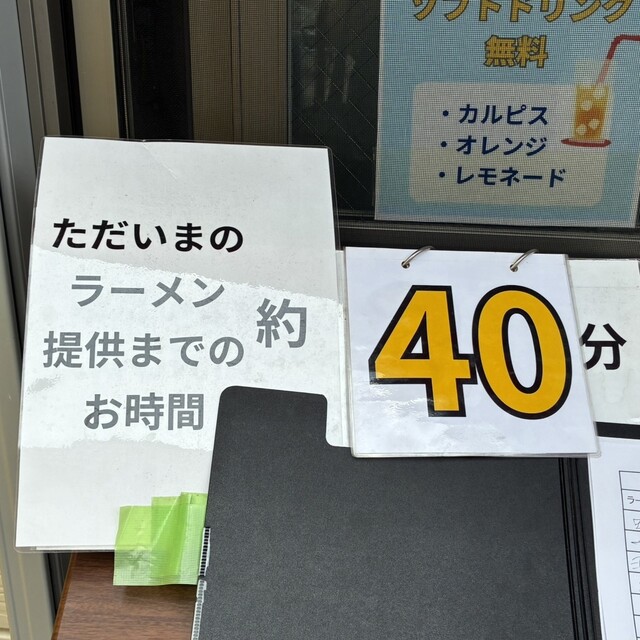 ソフトドリンク
無料
・カルピス
・オレンジ
・レモネード
ただいまの
ラーメン
提供までの
お時間
約
40
分